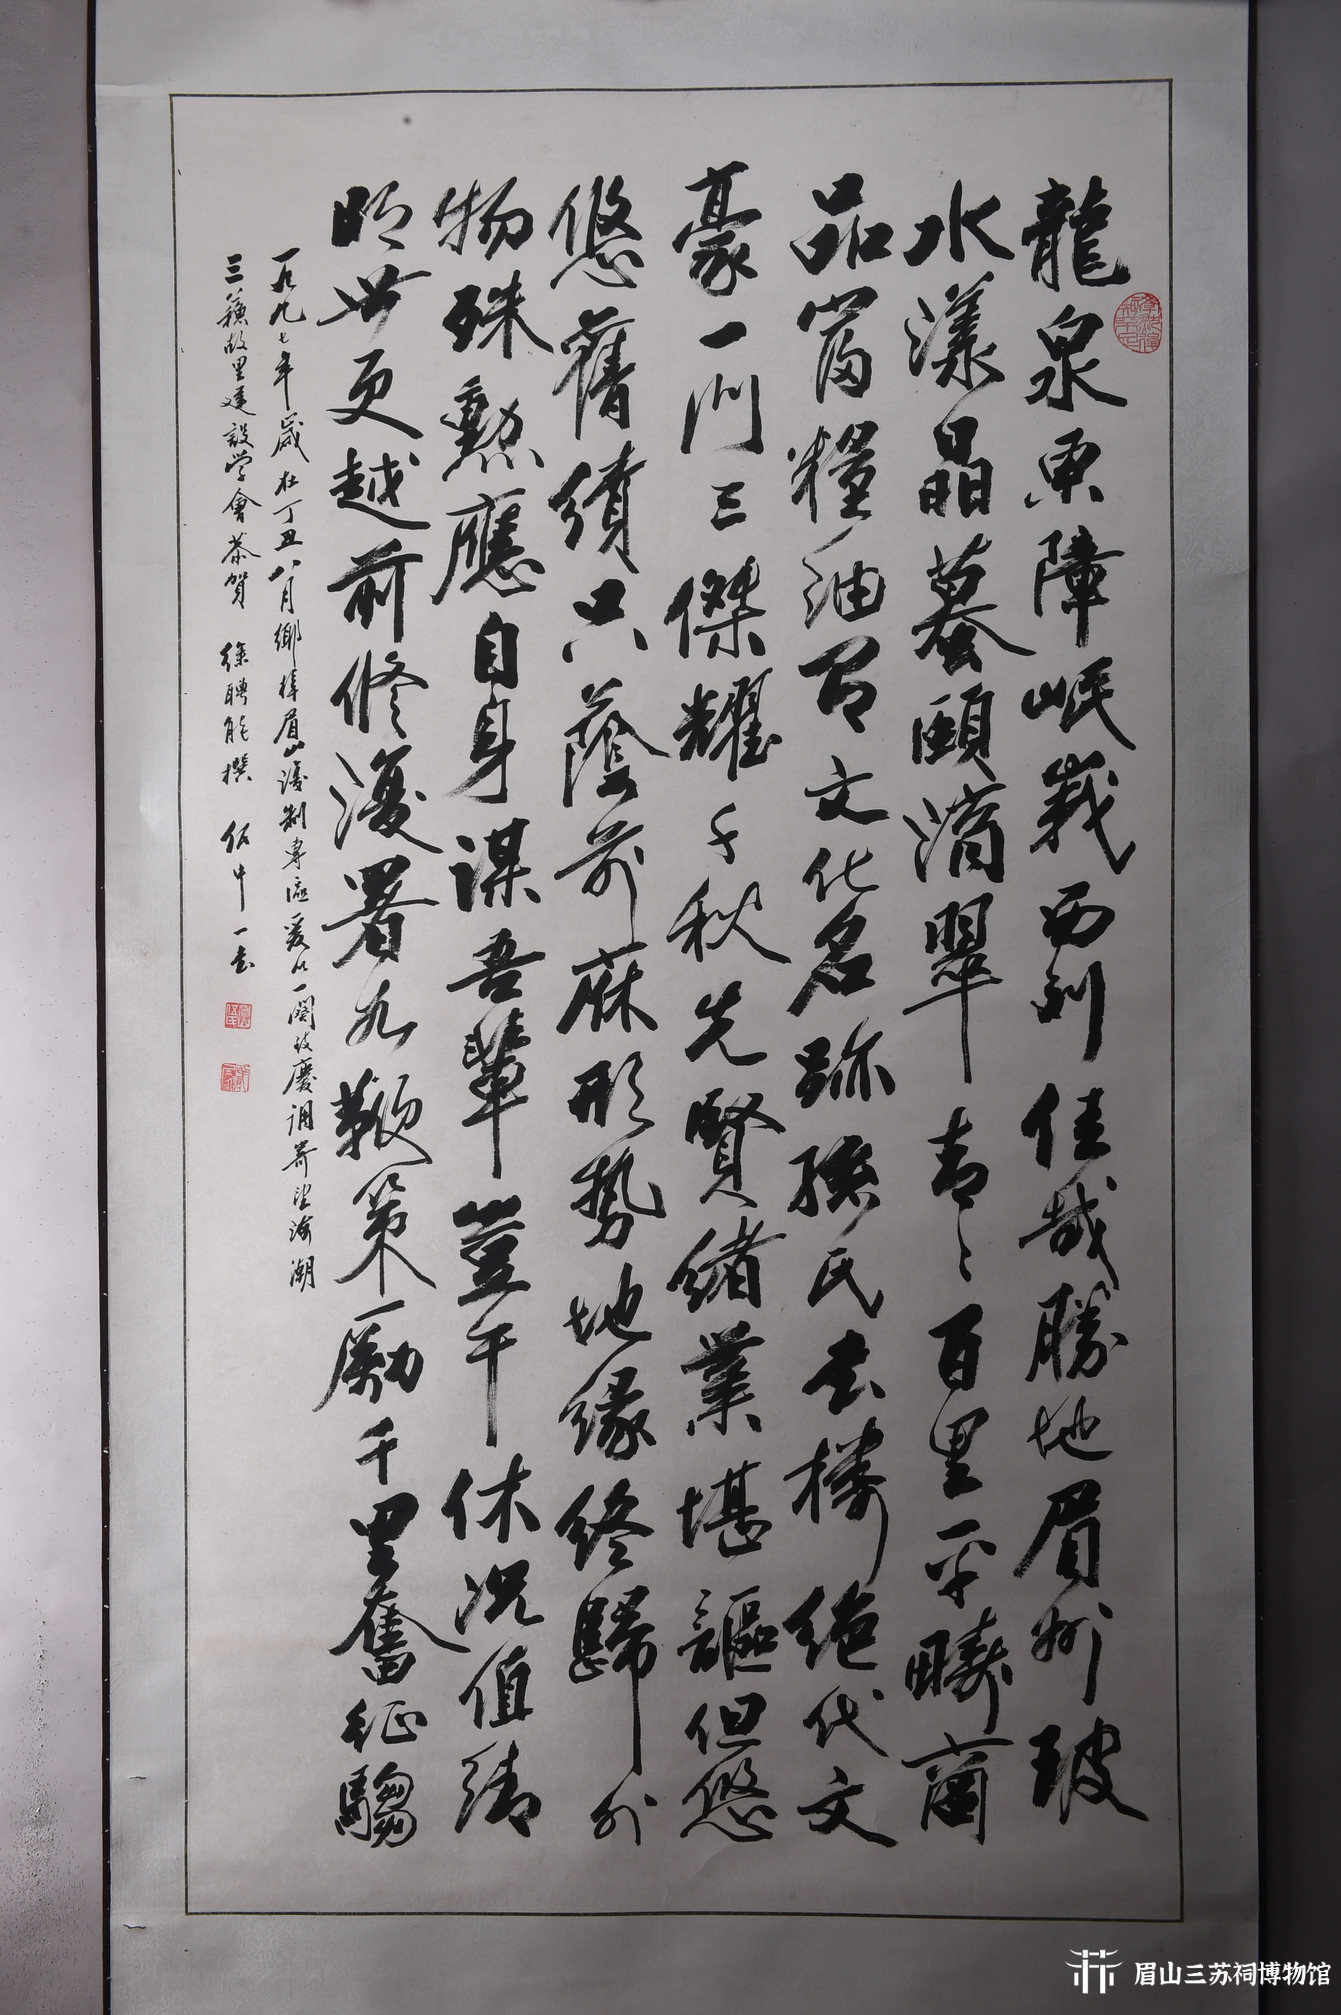 龍泉東障岷峩西列佳哉勝地眉州玻
水漾晶蟇頤滴翠青青百里平疇菌
品富糧油有文化名跡孫氏書樓絶代文
豪一門三傑耀千秋先賢緒業堪謳但悠
悠舊績只蔭前庥形勢地緣終歸外
物殊勲應自身謀吾輩豈干休況值清
明世更越前修復署如鞭策勵千里奮征騶
一九九七年歲在丁丑八月鄉梓眉山復制專區爰以一闋致慶調寄望海潮
三蘇故里建設學會恭賀 徐聘能撰 伍中一書
眉山三苏祠博物馆